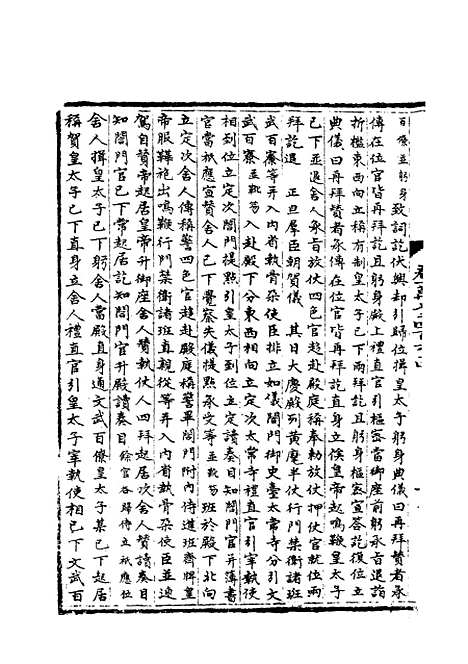 百僚並躬身致詞訖伏興却引歸位揖皇太子躬身典儀曰再拜贊者承
傳在位官皆再拜訖且躬身殿上禮直官引樞密當御座前躬承旨退詣
折檻東西向立稱有制皇太子已下再拜訖躬身樞密宣答訖復位立
典儀曰再拜贊者承傳在位官皆再拜訖直身立候皇帝起鳴鞭皇太子
已下並退舍人承旨放仗四色官趍赴殿庭稱奉勅放仗押仗官就位兩
拜訖退　正旦羣臣朝賀儀　其日大慶殿列黃麾半仗行門禁衛諸班
武百寮等並入內省執骨朶使臣排立如儀閤門御史臺太常寺分引文
武百寮並靴笏入赴殿下分東西相向立定次太常寺禮直官引宰執使
相到位立定次閤門提點引皇太子到位立定讀奏目知閤門官并簿書
官當祇應宣贊舍人已下覺察失儀提點承受等並靴笏班於殿下北向
立定次舍人傳稱警四色官趍赴殿庭稱警畢閤門附內侍進齊牌皇
帝服鞾袍出鳴鞭行門禁衛諸班直親從等并入內省執骨朶使臣並迎
駕自贊常起居皇帝升御座舍人贊執仗人四拜起居次舍人贊讀奏目
知閤門官已下常起居訖知閤門官升殿讀奏目餘官各歸侍立祇應位
舍人揖皇太子已下躬舍人當殿直身通文武百僚皇太子某已下起居
稱賀皇太子已下直身立舍人禮直官引皇太子宰執使相已下文武百